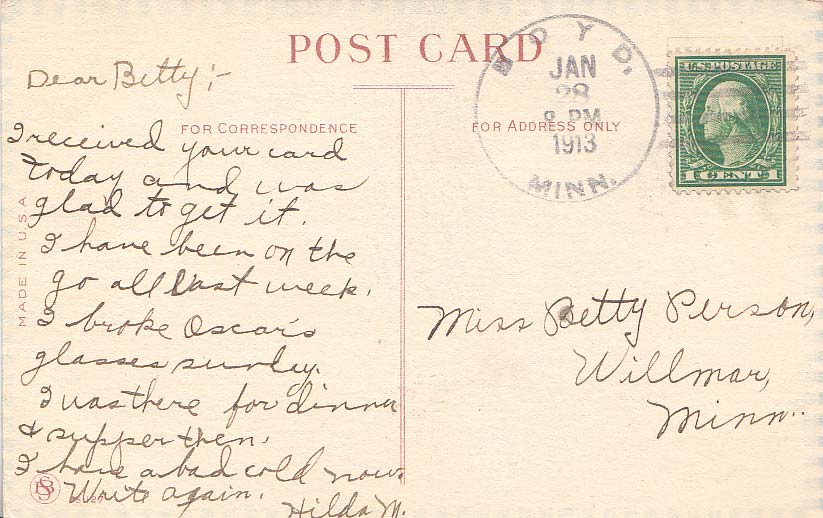 POST CARD
BOYD,
JAN
28
8 PM
1913
MINN.
U.S. POSTAGE
1 CENT 1
Dear Betty;-
FOR CORRESPONDENCE
FOR ADDRESS ONLY
I received your card
today and was
glad to get it.
I have been on the
go all last week.
I broke Oscar's
glasses sunday.
I was there for dinner
& supper then.
I have a bad cold now.
Write again.
Hilda M.
MADE IN U.S.A
Miss Betty Person,
Willmar,
Minn.